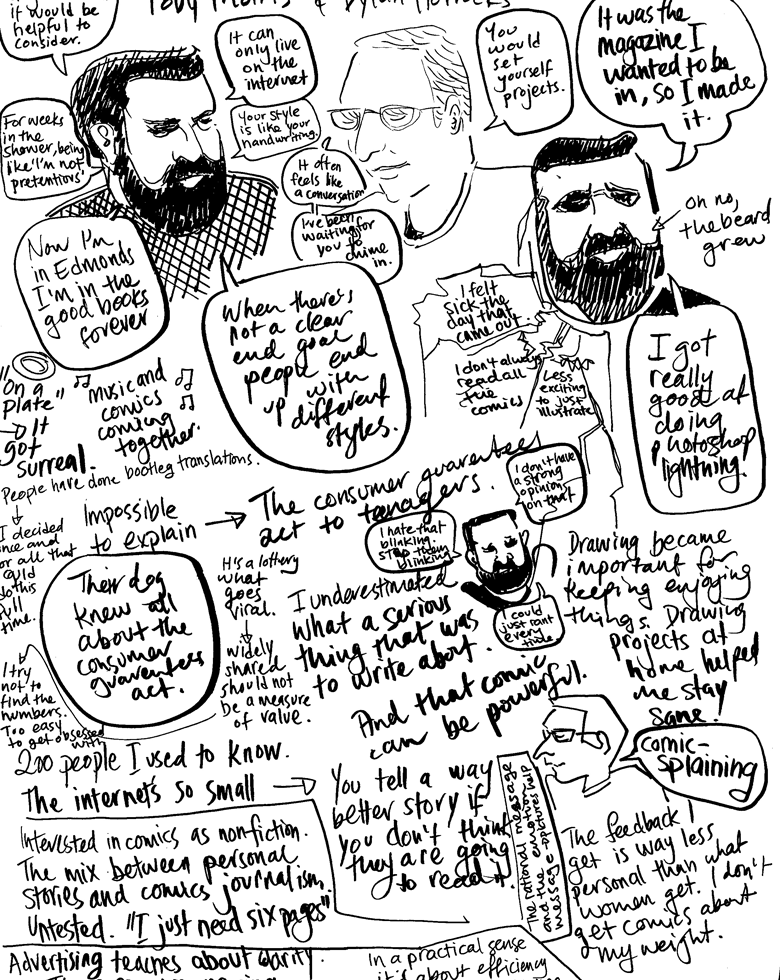 it would be
helpful to
consider.
It can
only live
on the
internet
You
would
set
yourself
projects.
It was the
magazine I
wanted to be
in, so I made
it.
For weeks
in the
shower, being
like 'I'm not
pretentious'
Your style
is like your
handwriting.
It often
feels like
a conversation
I've been
waiting for
you to
chime
in.
oh no,
the beard
grew
Now I'm
in Edmonds
I'm in the
good books
forever
When there's
not a clear
end goal
people end
up with
different
styles.
I felt
sick the
day that
came out.
I don't always
read all
the
comics
Less
exciting
to just
illustrate
I got
really
good at
doing
photoshop
lightning.
"On a
Plate"
→ It
got
surreal.
Music and
comics
coming
together.
People have done bootleg translations.
I decided
once and
for all that
could
do this
full
time.
I try
not to
find the
numbers.
Too easy
to get obsessed
with
Impossible
to explain →
The consumer guarantees
act to teenagers.
Their dog
knew all
about the
consumer
guarantees
act.
It's a lottery
what
goes
viral.
widely
shared
should not
be a measure
of value.
I don't have
a strong
opinion
on that
I hate that
blinking.
Stop today
blinking
I could
just rant
every
time
I underestimated
what a serious
thing that was
to write about.
And that comic
can be powerful.
Drawing became
important for
keeping enjoying
things. Drawing
projects at
home helped
me stay
sane.
comic-
splaining
200 people I used to know.
The internet's so small →
You tell a way
better story if
you don't think
they are going
to read it.
The rational message
and the emotions help
message + pictures
The feedback I
get is way less
personal than what
women get. I don't
get comics about
my weight.
Interested in comics as nonfiction.
The mix between personal
stories and comics journalism.
Untested. "I just need six pages"
Advertising teaches about clarity.
In a practical sense
it's about efficiency